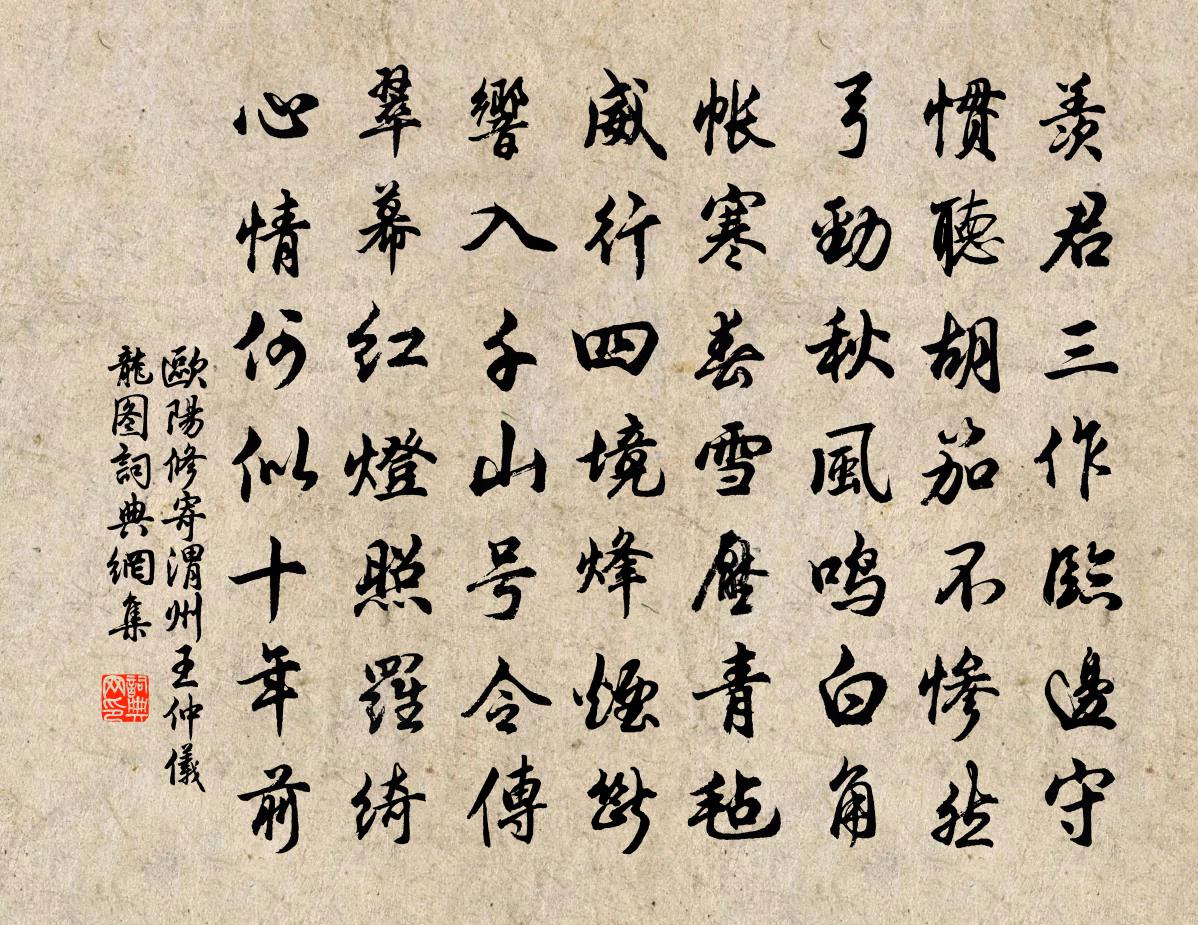 羨君三作臨邊守
慣聽胡笳不慘然
弓勁秋風鳴白角
帳寒春雪壓青毡
威行四境烽煙斷
響入千山号令傳
翠幕紅燈照羅綺
心情何似十年前
歐陽修寄渭州王仲儀
龍图詞典網集
詞典
网印